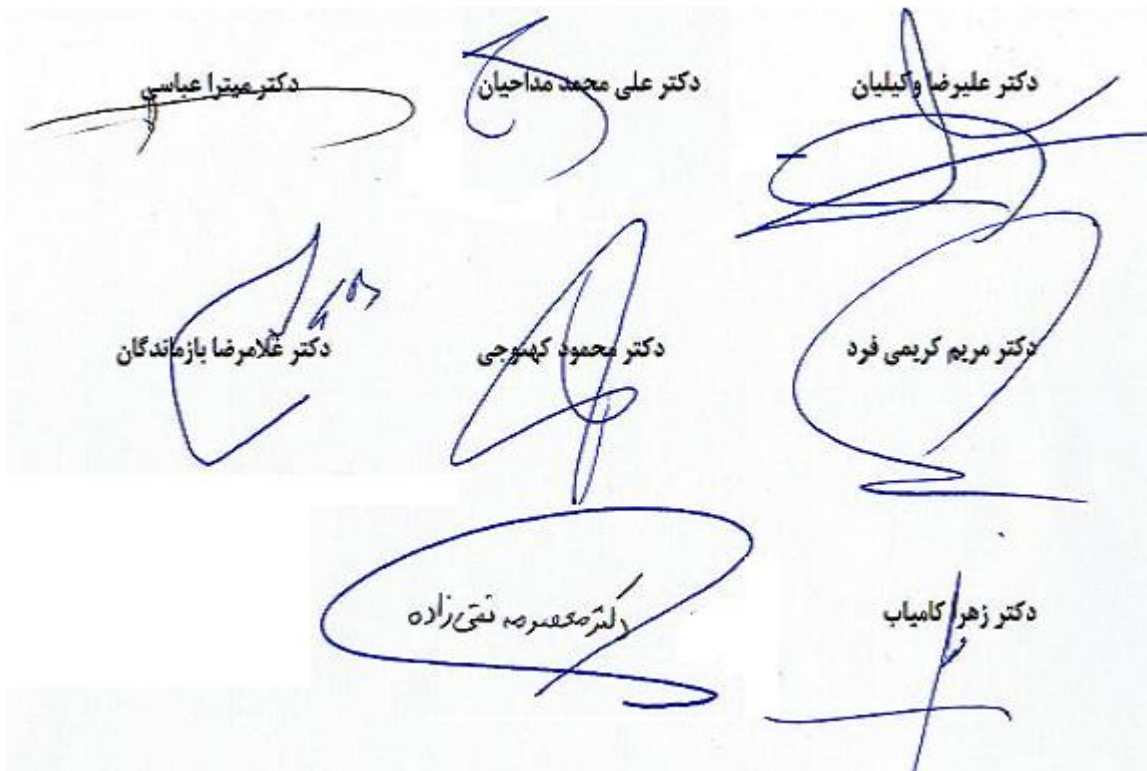 دکتر علیرضا وکیلیان دکتر علی محمد مداحیان دکتر میترا عباسی
دکتر مریم کریمی فرد دکتر محمود کهنوجی دکتر غلامرضا بازماندگان
دکتر زهرا کامیاب دکتر معصومه تقی زاده